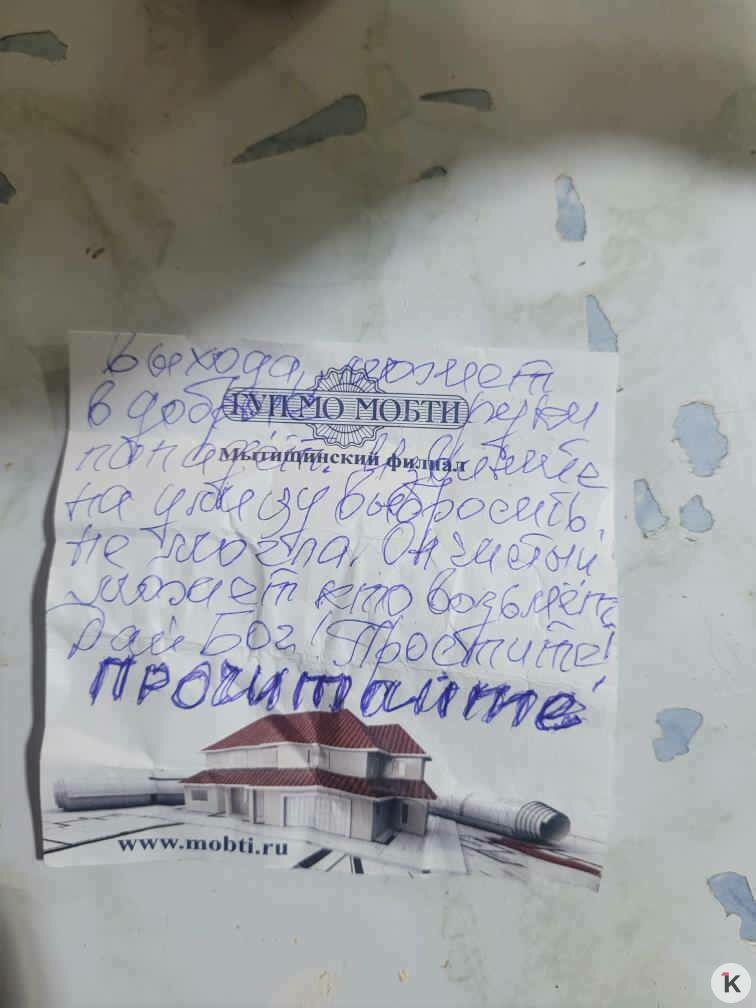 Выхода, может
в добрые руки
ГУП МО МОБТИ
попадёт. Извините
Мытищинский филиал
на улицу выбросить
не могла. Он чистый
может кто возьмёт,
Дай Бог! Простите!
Прочитайте!
www.mobti.ru
K